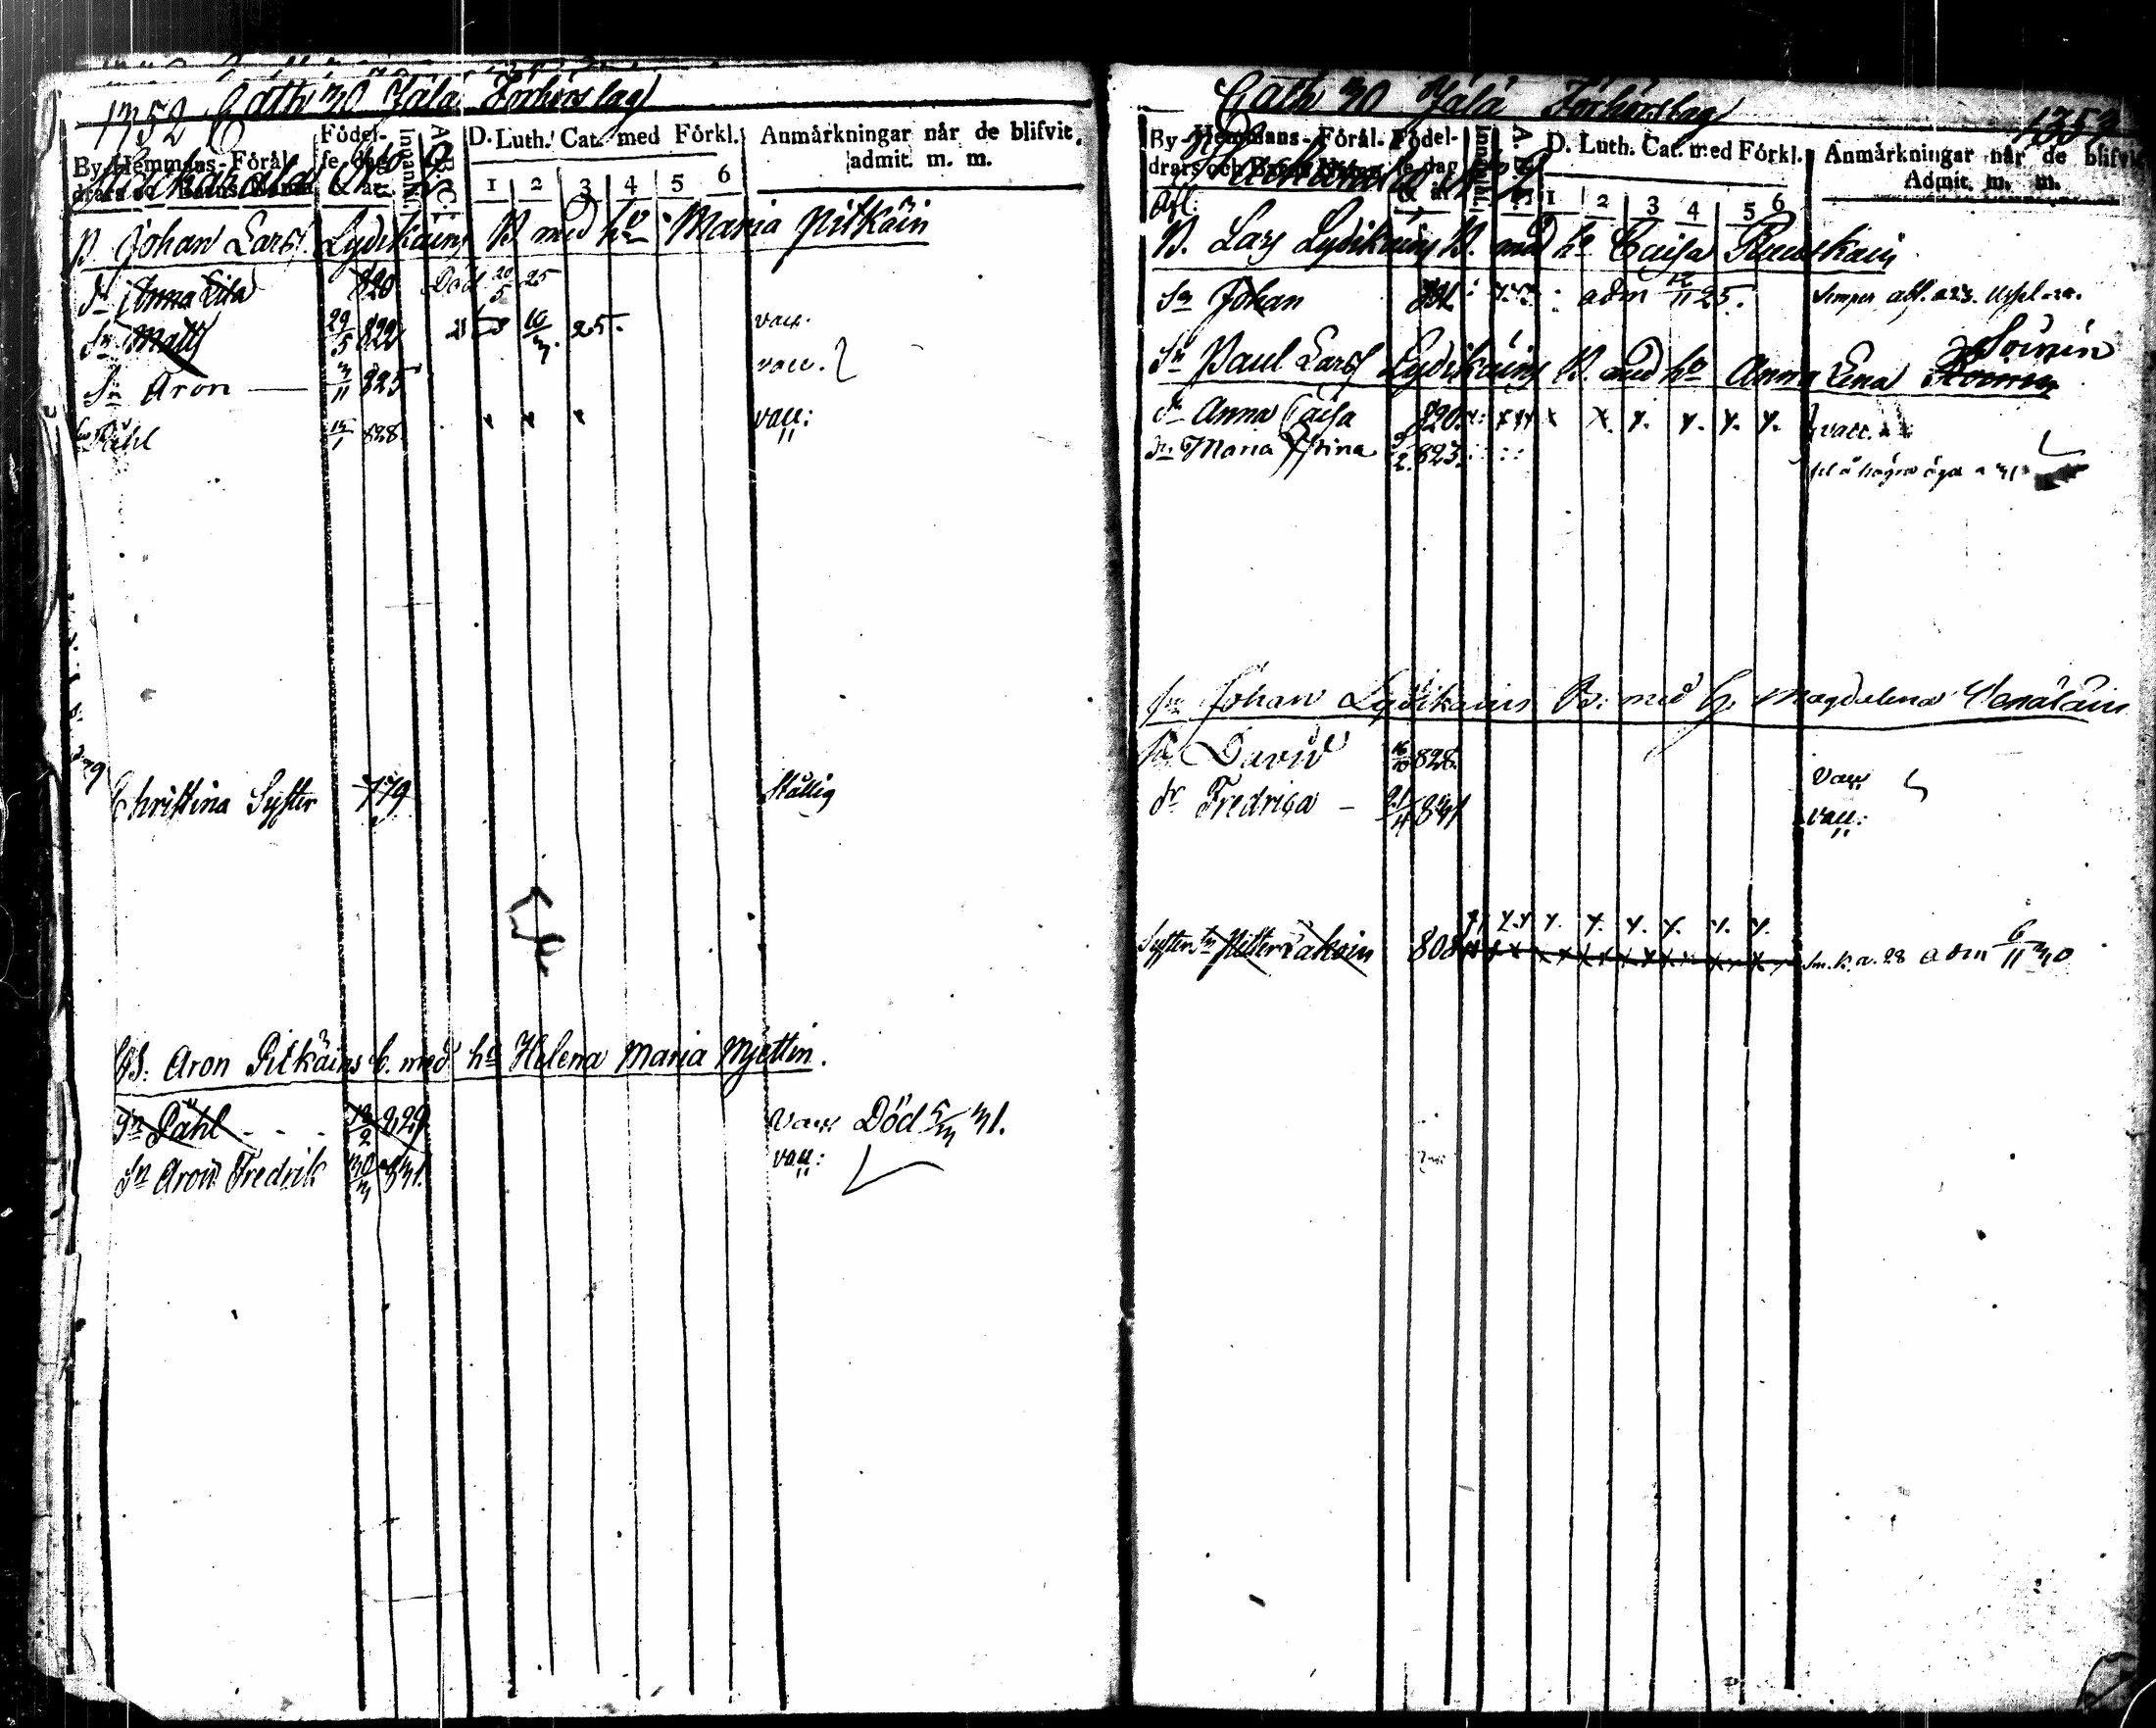 1352 Cath 30 Jälä Förhörslag
By-Hemmans-Föräl-
drars och Barns Namn
Födel-
se dag
& år
Innan K.
A.B.C.
D. Luth. Cat. med Förkl.
1 2 3 4 5 6
Anmärkningar når de blifvit
admit. m. m.
B. Johan Larss. Lydikäins B. med ho Maria Pitkäin
dr Anna Lisa 820 Död 20/5 25
Sn Matts 29/5 822 10/3 25. vacc.
Sn Aron — 3/11 825 vacc.
Sn Påhl 828 x x x vacc:
Christina Syster 779 Ställig
Aron Pitkäins b. med ho Helena Maria Myettin.
Sn Påhl - - - 12/2 829 vacc. Död 5/3 31.
Sn Aron Fredrik 30/3 831. vacc:
Cath 30 Jälä Förhörslag 1353
By-Hemmans-Föräl-
drars och Barns Namn
Födel-
se dag
& år
Innantill
A. B. C.
D. Luth. Cat. med Förkl.
1 2 3 4 5 6
Anmärkningar når de blifvit
Admit. m. m.
Afl:
B. Lars Lydikäins B. med ho Caisa Ruuskain
Sn Johan adm 12/11 25. Semper abs. a 23.
Soinin
Sn Paul Larss Lydikäins B. med ho Anna Lena
dr Anna Caisa 820. x x x x x x. x. x. x. vacc.
dr Maria Stina 9/2. 823. fel å högra öga
Sn Johan Lydikäins B. med h. Magdalena Venäläin
Sn David 16/10 828. Vacc
dr Fredrica — 21/4 831 vacc:
Syster Sn 808 adm 6/11 30